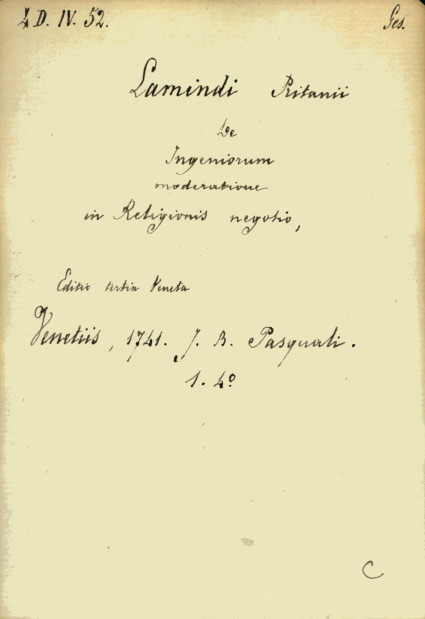 Z D. IV. 52. Ges.
Lamindi Ritanii
De
Ingeniorum
moderatione
in Religionis negotio,
Editio tertia Veneta
Venetiis, 1741. J. B. Pasquali.
1. 4º
C